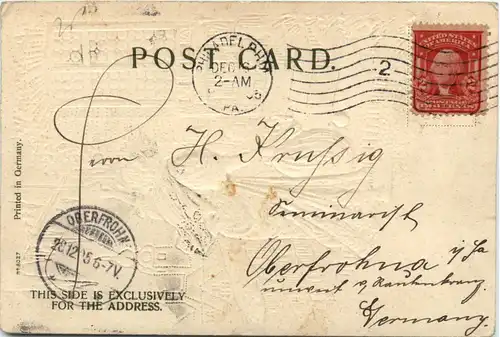 POST CARD.
PHILADELPHIA
DEC
2-AM
PA.
2
UNITED STATES
OF AMERICA
Herrn H. Krussig
Seminarist
Oberfrohna i/Sa
Germany.
Printed in Germany.
OBERFROHNA
28.12.05 6-7V.
THIS SIDE IS EXCLUSIVELY
FOR THE ADDRESS.